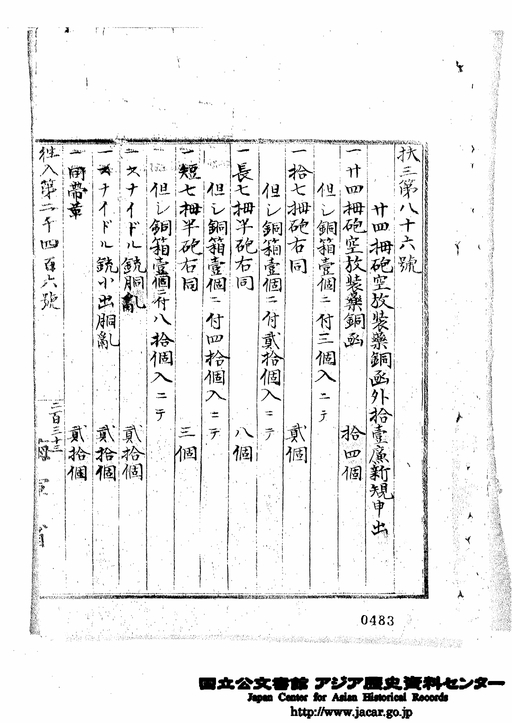 扶三第八十六號
廿四拇砲空放裝藥銅函外拾壹廉新規申出
一廿四拇砲空放裝藥銅函 拾四個
但シ銅箱壹個ニ付三個入ニテ
一拾七拇砲右同 貳個
但シ銅箱壹個ニ付貳拾個入ニテ
一長七拇半砲右同 八個
但シ銅箱壹個ニ付四拾個入ニテ
一短七拇半砲右同 三個
但シ銅箱壹個ニ付八拾個入ニテ
一スナイドル銃胴亂 貳拾個
一スナイドル銃小出胴亂 貳拾個
一同帶革 貳拾個
往入第二千四百六號
二百三十三
海軍省
0483
国立公文書館 アジア歴史資料センター
Japan Center for Asian Historical Records
http://www.jacar.go.jp